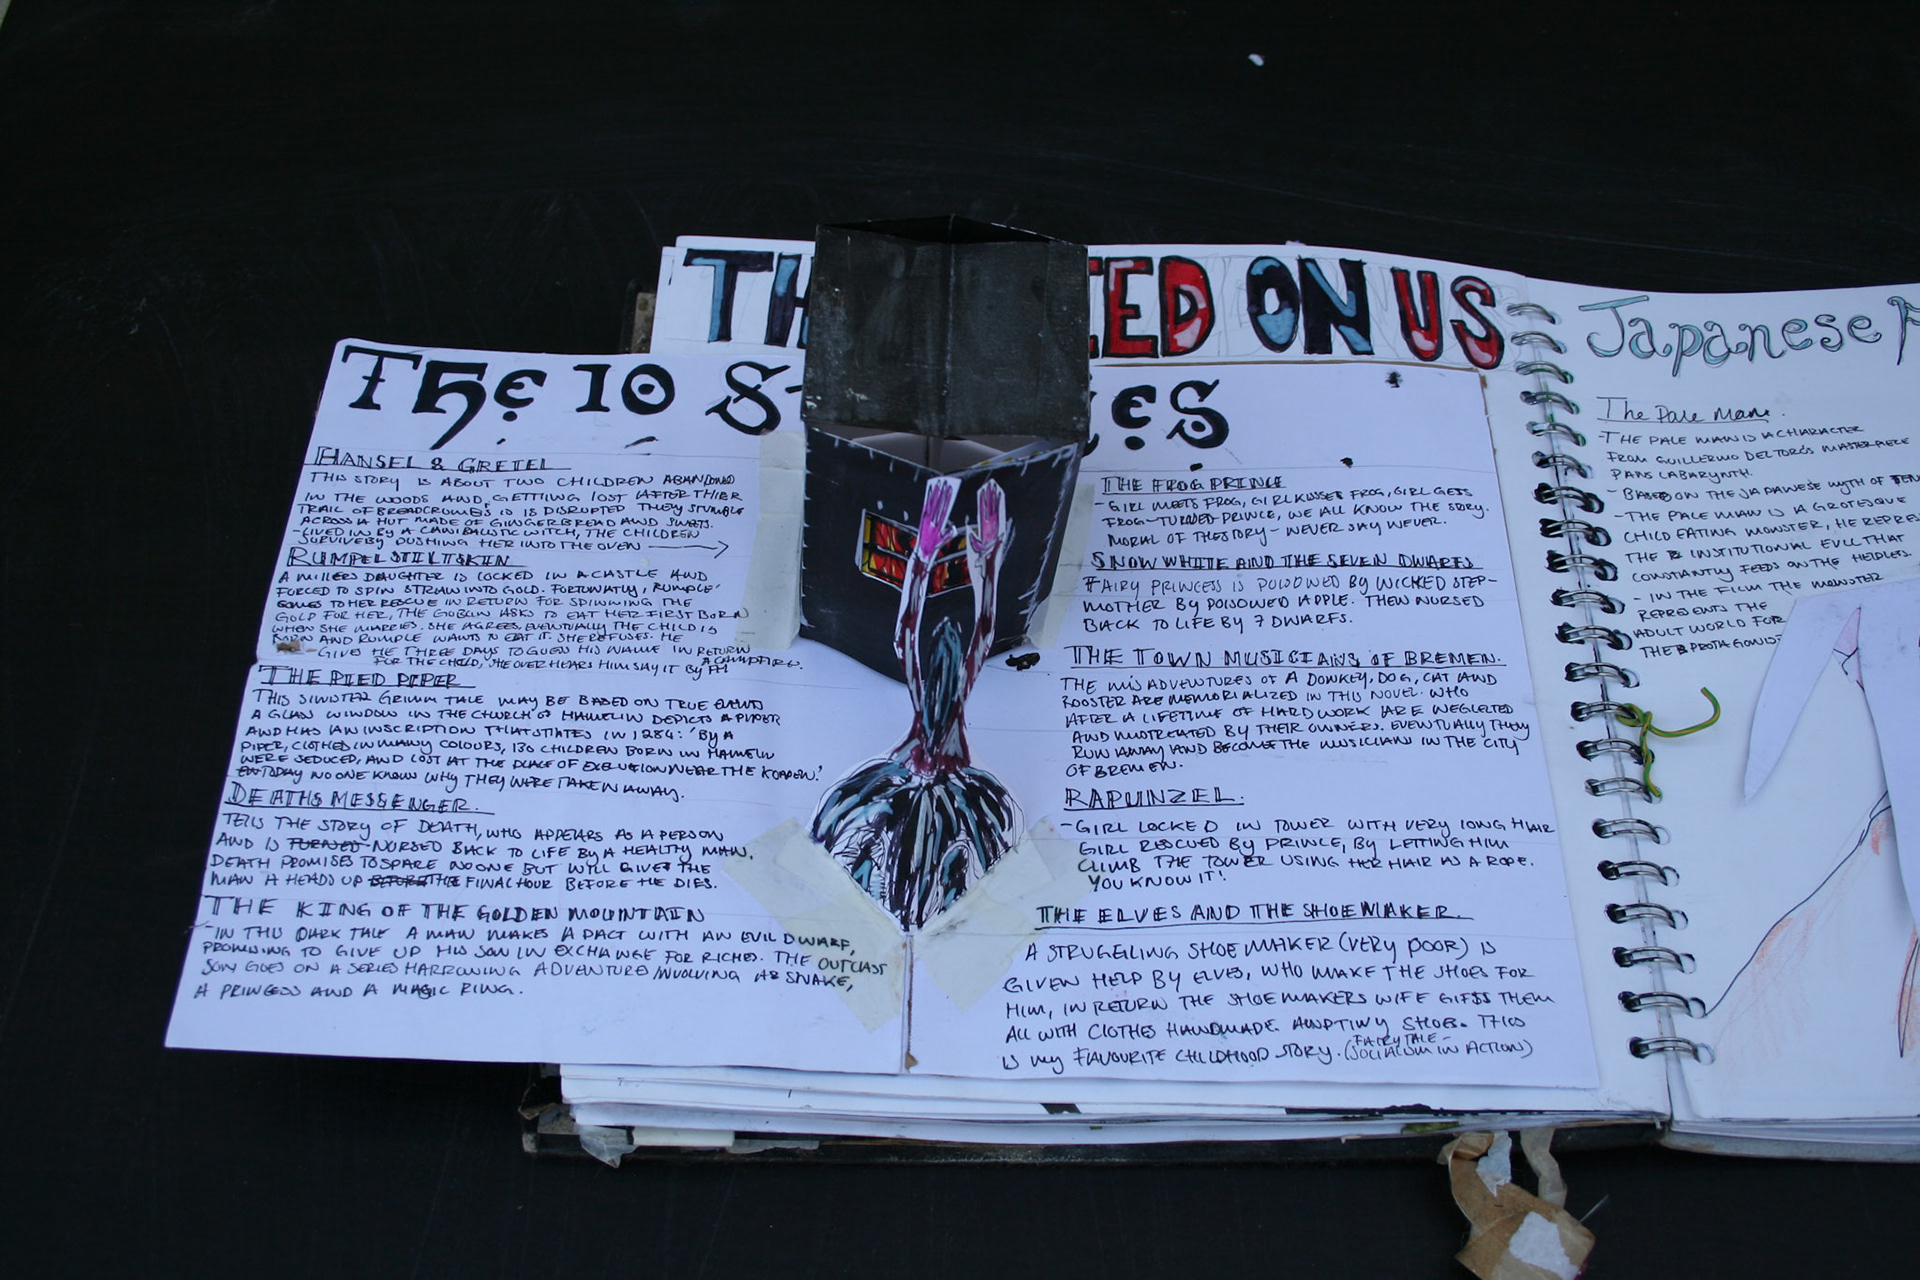 TH
ED ON US
The 10 S
es
HANSEL & GRETEL
THIS STORY IS ABOUT TWO CHILDREN ABANDONED
IN THE WOODS AND, GETTING LOST AFTER THIER
TRAIL OF BREADCROMBS IS DISRUPTED THEY STUMBLE
ACROSS A HUT MADE OF GINGERBREAD AND SWEETS.
-LIVED IN BY A CANIBALISTIC WITCH, THE CHILDREN
SURVIVE BY PUSHING HER INTO THE OVEN
RUMPELSTILTSKIN
A MILLERS DAUGHTER IS LOCKED IN A CASTLE AND
FORCED TO SPIN STRAW INTO GOLD. FORTUNATLY, 'RUMPLE'
COMES TO HER RESCUE IN RETURN FOR SPINNING THE
GOLD FOR HER, THE GOBLIN ASKS TO EAT HER FIRST BORN
WHEN SHE MARRIES. SHE AGREES, EVENTUALLY THE CHILD IS
BORN AND RUMPLE WANTS TO EAT IT. SHE REFUSES. HE
GIVES HE THREE DAYS TO GUESS HIS NAME IN RETURN
FOR THE CHILD, SHE OVER HEARS HIM SAY IT BY A CAMPFIRE.
THE PIED PIPER
THIS SINISTER GRIMM TALE MAY BE BASED ON TRUE EVENTS
A GLASS WINDOW IN THE CHURCH OF HAMELIN DEPICTS A PIPER
AND HAS AN INSCRIPTION THAT STATES IN 1284: 'BY A
PIPER, CLOTHED IN MANY COLOURS, 130 CHILDREN BORN IN HAMELIN
WERE SEDUCED, AND LOST AT THE PLACE OF EXECUTION NEAR THE KOPPEN.'
TODAY NO ONE KNOW WHY THEY WERE TAKEN AWAY.
DEATHS MESSENGER.
TELLS THE STORY OF DEATH, WHO APPEARS AS A PERSON
AND IS TURNED NURSED BACK TO LIFE BY A HEALTHY MAN.
DEATH PROMISES TO SPARE NO ONE BUT WILL GIVE THE
MAN A HEADS UP BEFORE THE FINAL HOUR BEFORE HE DIES.
THE KING OF THE GOLDEN MOUNTAIN
-IN THIS DARK TALE A MAN MAKES A PACT WITH AN EVIL DWARF,
PROMISING TO GIVE UP HIS SON IN EXCHANGE FOR RICHES. THE OUTCAST
SON GOES ON A SERIES HARROWING ADVENTURE INVOLVING A SNAKE,
A PRINCESS AND A MAGIC RING.
THE FROG PRINCE
-GIRL MEETS FROG, GIRL KISSES FROG, GIRL GETS
FROG-TURNED PRINCE, WE ALL KNOW THE STORY.
MORAL OF THE STORY - NEVER SAY NEVER.
SNOW WHITE AND THE SEVEN DWARFS
FAIRY PRINCESS IS POISONED BY WICKED STEP-
MOTHER BY POISONED APPLE. THEN NURSED
BACK TO LIFE BY 7 DWARFS.
THE TOWN MUSICIANS OF BREMEN.
THE MIS ADVENTURES OF A DONKEY, DOG, CAT AND
ROOSTER ARE MEMORIALIZED IN THIS NOVEL. WHO
AFTER A LIFETIME OF HARD WORK ARE NEGLECTED
AND MISTREATED BY THEIR OWNERS. EVENTUALLY THEY
RUN AWAY AND BECOME THE MUSICIANS IN THE CITY
OF BREMEN.
RAPUNZEL.
-GIRL LOCKED IN TOWER WITH VERY LONG HAIR
GIRL RESCUED BY PRINCE, BY LETTING HIM
CLIMB THE TOWER USING HER HAIR AS A ROPE.
YOU KNOW IT!
THE ELVES AND THE SHOEMAKER.
A STRUGGLING SHOE MAKER (VERY POOR) IS
GIVEN HELP BY ELVES, WHO MAKE THE SHOES FOR
HIM, IN RETURN THE SHOEMAKERS WIFE GIFTS THEM
ALL WITH CLOTHES HANDMADE AND TINY SHOES. THIS
IS MY FAVOURITE CHILDHOOD STORY. (FAIRYTALE-
SOCIALISM IN ACTION)
Japanese
The Pale Man.
-THE PALE MAN IS A CHARACTER
FROM GUILLERMO DEL TORO'S MASTERPIECE
PANS LABARYNTH.
-BASED ON THE JAPANESE MYTH OF
-THE PALE MAN IS A GROTESQUE
CHILD EATING MONSTER, HE REPRES
THE INSTITUTIONAL EVIL THAT
CONSTANTLY FEEDS ON THE HELPLESS.
- IN THE FILM THE MONSTER
REPRESENTS THE
ADULT WORLD FOR
THE PROTAGONIST